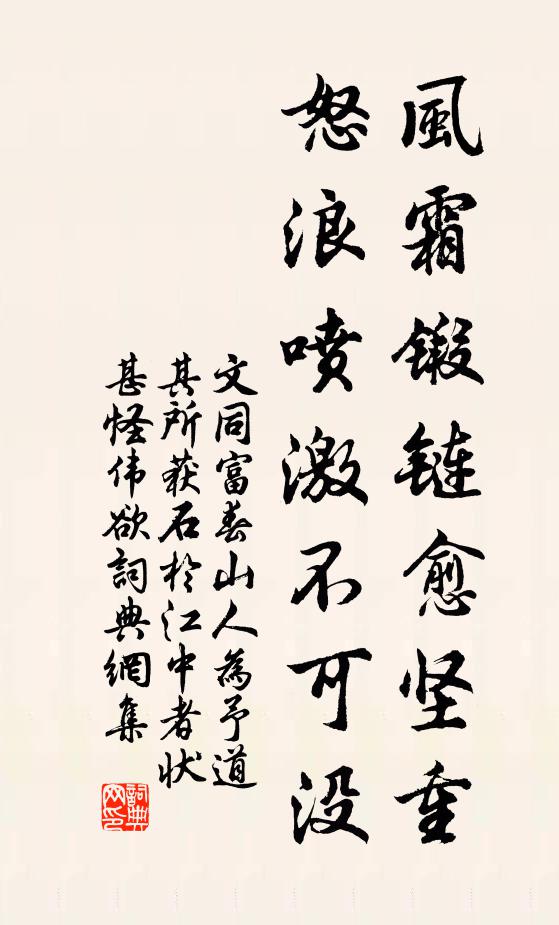 風霜鍛鏈愈坚重
怒浪喷激不可没
文同富春山人為予道
其所获石於江中者状
甚怪伟欲詞典網集
詞典网印